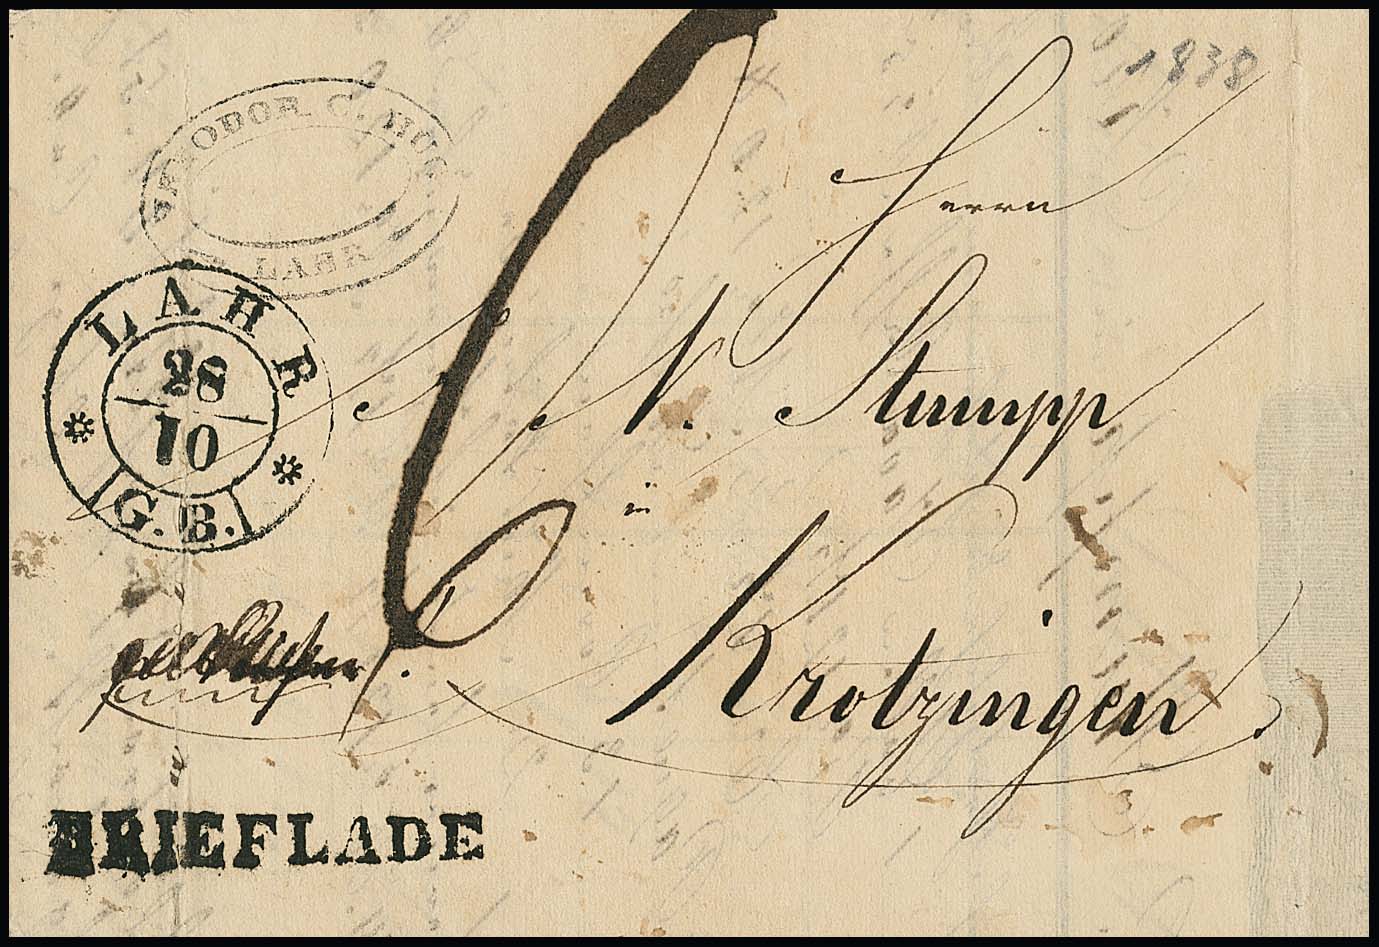 1838
THEODOR C. HUG
LAHR
LAHR
28
10
G. B.
6
Herrn
N. Stumpp
in
Krotzingen.
BRIEFLADE